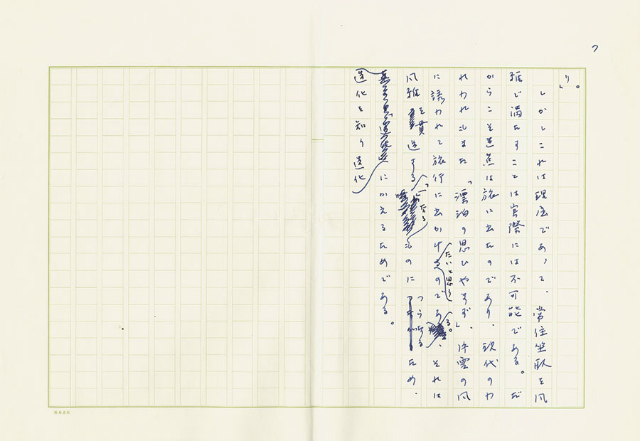 7
り」。
しかしこれは理想であって、常住坐臥を風
雅で満たすことは実際には不可能である。だ
からこそ芭蕉は旅に出たのであり、現代のわ
れわれもまた「漂泊の思ひやまず」、片雲の風
に誘われて旅行に出かけたいと思うのである。それは
風雅を貫道するものに つらなるため、
造化を知り造化にかえるためである。